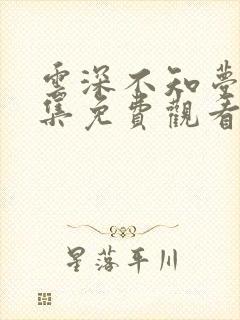 雲深不知夢
集免費觀看
星落平川